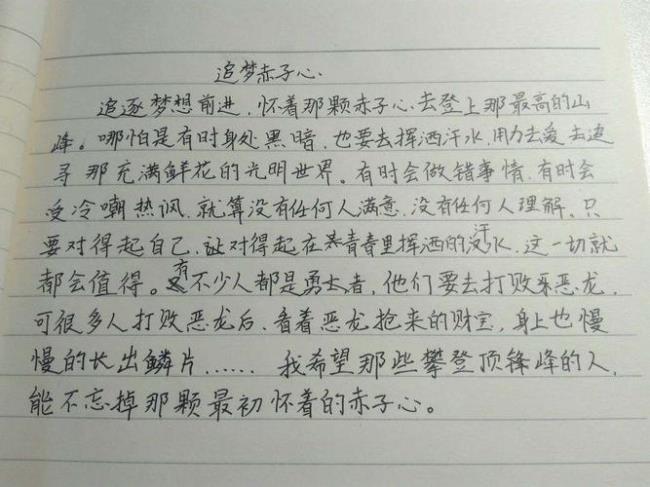 追梦赤子心.
追逐梦想前进,怀着那颗赤子心.去登上那最高的山
峰。哪怕是有时身处黑暗,也要去挥洒汗水,用力去爱 去追
寻那充满鲜花的光明世界。有时会做错事情,有时会
受冷嘲热讽.就算没有任何人满意.没有任何人理解.只
要对得起自己.让对得起在青春里挥洒的汗水.这一切就
都会值得。有不少人都是勇者,他们要去打败恶龙,
可很多人打败恶龙后.看着恶龙抢来的财宝,身上也慢
慢的长出鳞片……我希望那些攀登顶峰的人,
能不忘掉那颗最初怀着的赤子心。